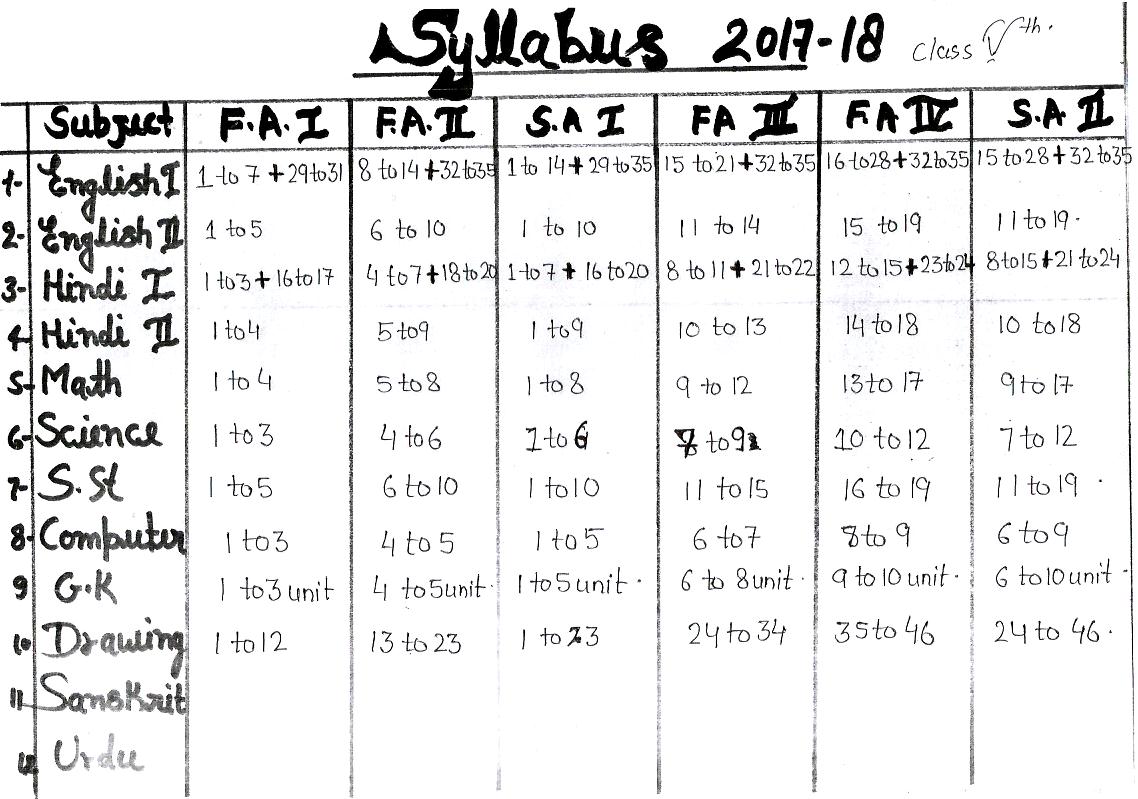 Syllabus 2017-18 Class Vth.
Subject F.A. I F.A. II S.A I FA III F.A IV S.A II
1- English I 1 to 7 + 29 to 31 8 to 14 + 32 to 35 1 to 14 + 29 to 35 15 to 21 + 32 to 35 16 to 28 + 32 to 35 15 to 28 + 32 to 35
2- English II 1 to 5 6 to 10 1 to 10 11 to 14 15 to 19 11 to 19.
3- Hindi I 1 to 3 + 16 to 17 4 to 7 + 18 to 20 1 to 7 + 16 to 20 8 to 11 + 21 to 22 12 to 15 + 23 to 24 8 to 15 + 21 to 24
4- Hindi II 1 to 4 5 to 9 1 to 9 10 to 13 14 to 18 10 to 18
5- Math 1 to 4 5 to 8 1 to 8 9 to 12 13 to 17 9 to 17
6- Science 1 to 3 4 to 6 1 to 6 7 to 9 10 to 12 7 to 12
7- S.St 1 to 5 6 to 10 1 to 10 11 to 15 16 to 19 11 to 19.
8- Computer 1 to 3 4 to 5 1 to 5 6 to 7 8 to 9 6 to 9
9 G.K 1 to 3 unit 4 to 5 unit. 1 to 5 unit. 6 to 8 unit. 9 to 10 unit. 6 to 10 unit.
10 Drawing 1 to 12 13 to 23 1 to 23 24 to 34 35 to 46 24 to 46.
11 Sanskrit
12 Urdu